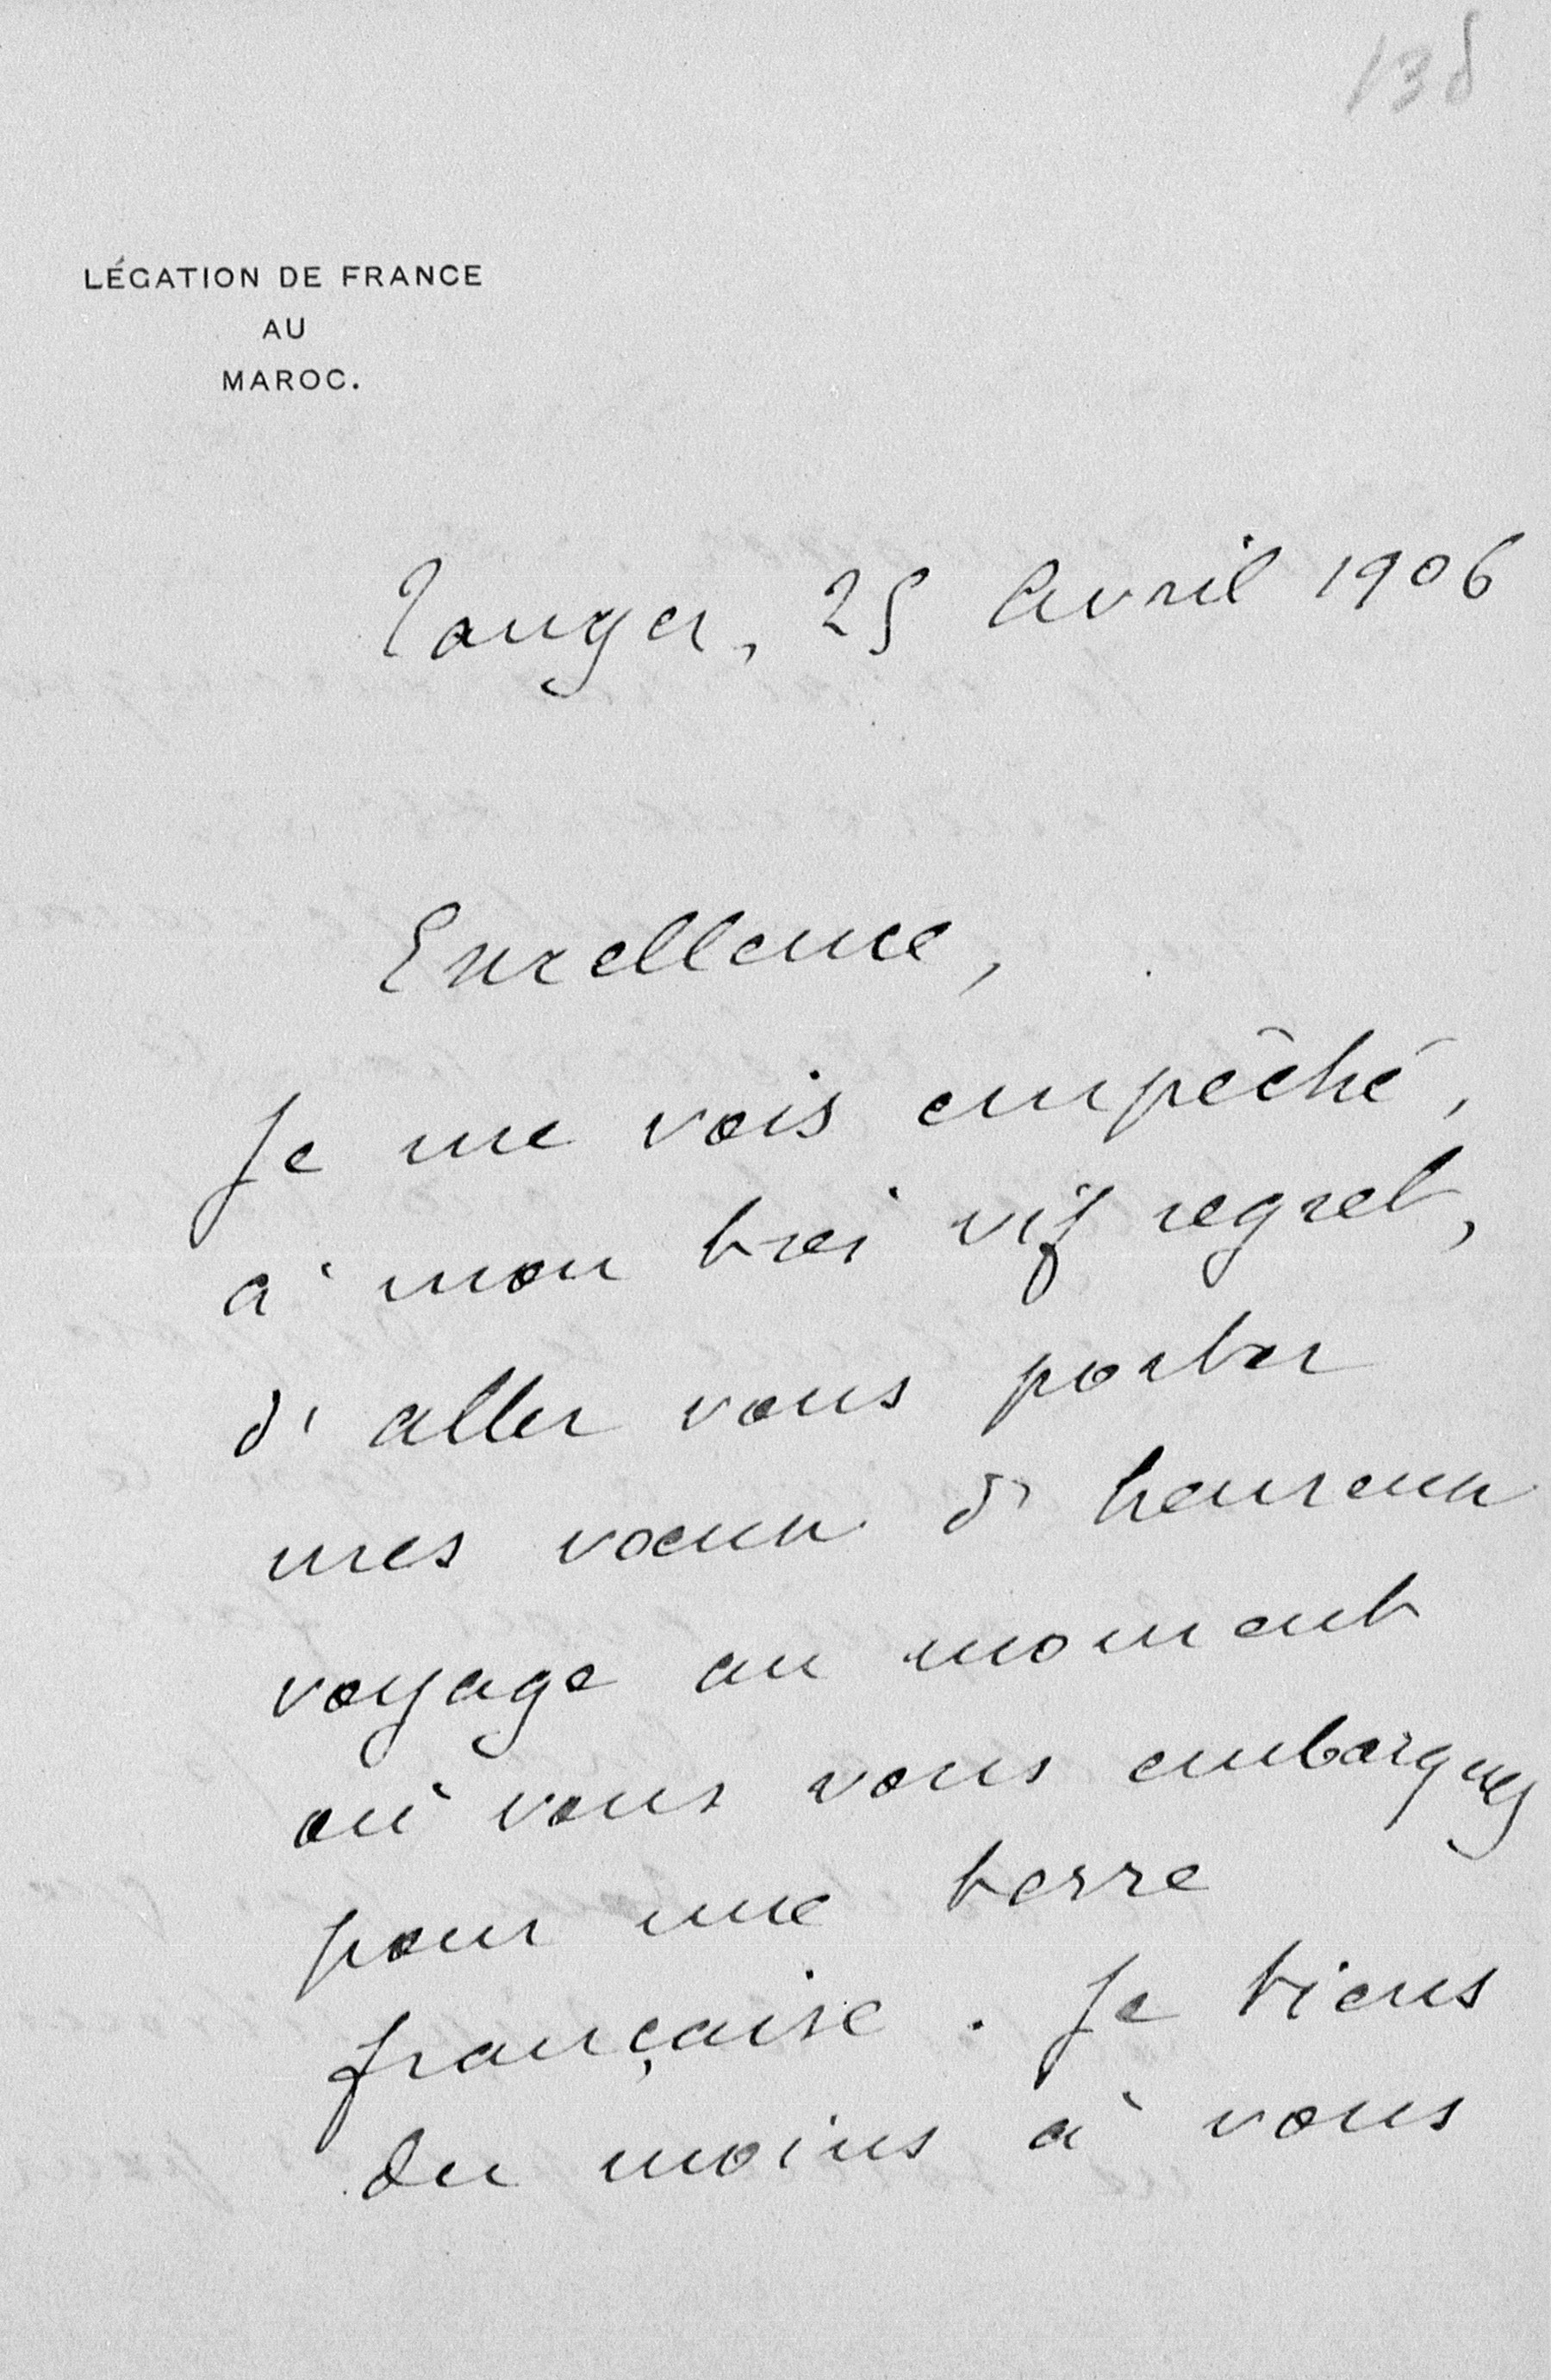 138
LÉGATION DE FRANCE
AU
MAROC.
Tanger, 25 Avril 1906
Excellence,
Je me vois empêché,
à mon très vif regret,
d'aller vous porter
mes vœux d'heureux
voyage au moment
où vous vous embarquez
pour une terre
française. Je tiens
du moins à vous